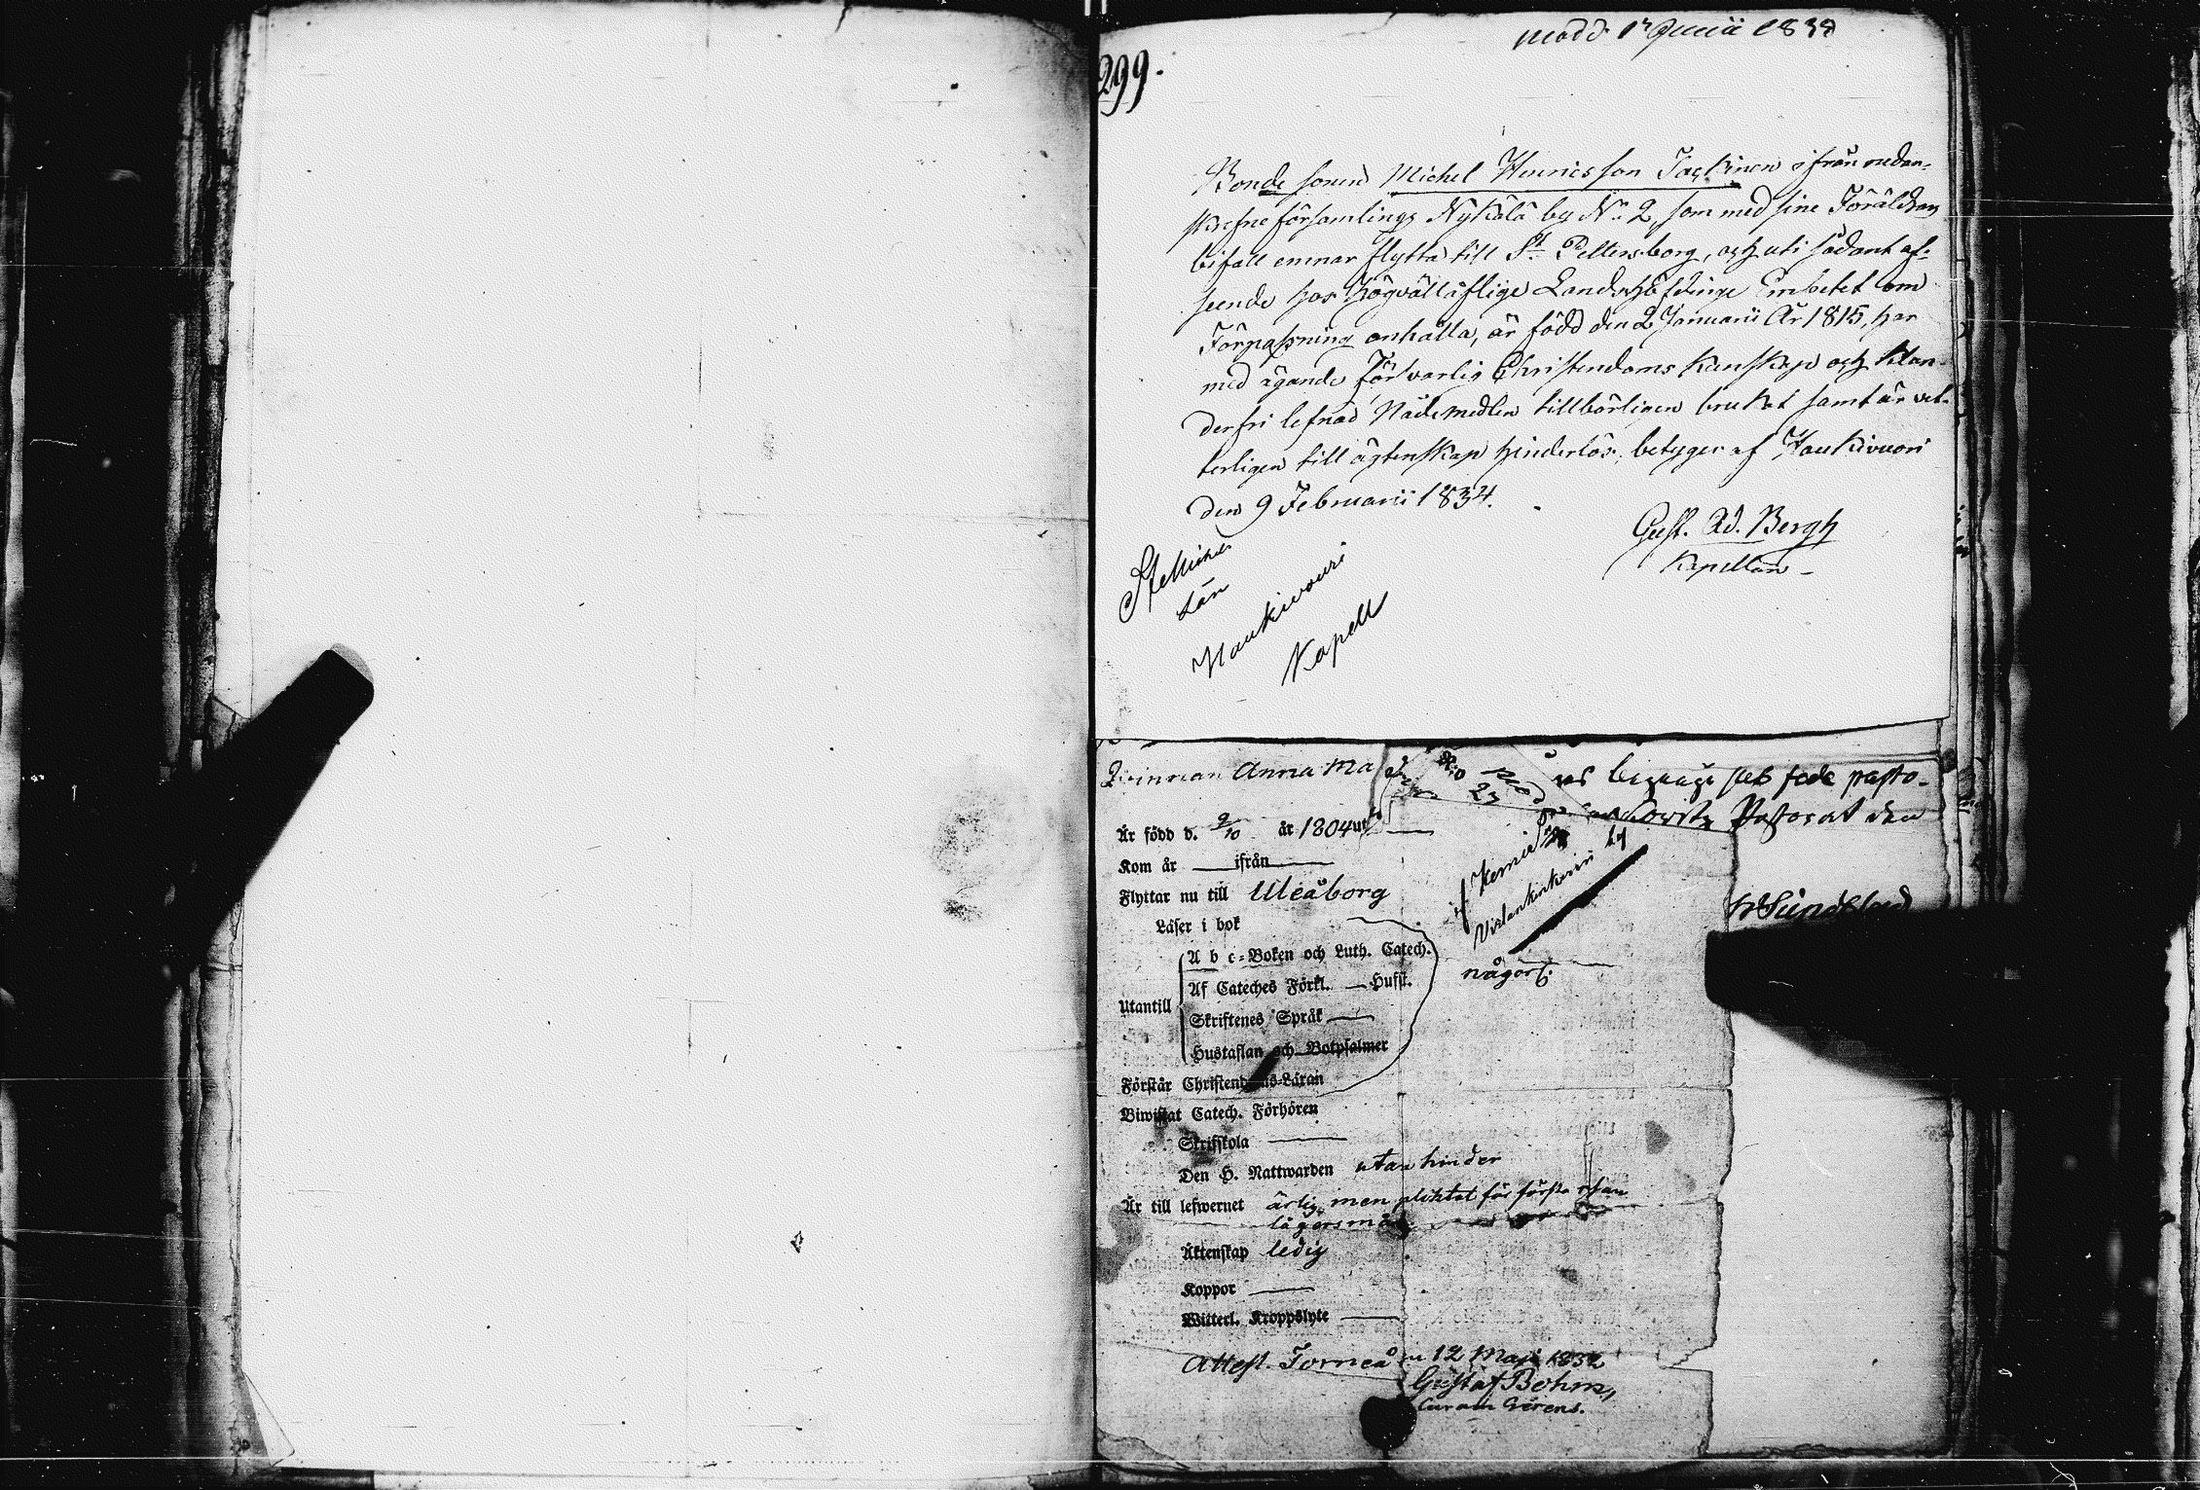 299.
Bonde sonen Michel Henricsson Jackinen ifrån nedan-
skrefne församlings Nykälä by No 2, som med sine Föräldrars
bifall ernnar flytta till St Pettersborg, och uti sådant af-
seende hos Högvällåflige Landshöfdinge Embetet om
Förpassning anhålla, är född den 2 Januarii År 1815, har
med ägande försvarlig Christendoms Kunskap och klan-
derfri lefnad Nådemedlen tillbörligen brukat samt är vet-
terligen till ägtenskap hinderlös; betyger af Haukivuori
den 9 Februarii 1834.
Gust. Ad. Bergh
Kapellan
St Michels
Län
Haukivuori
Kapell
Qvinnan Anna Ma
23
Pastorat den
Är född d. 9/10 år 1804
Kom år ifrån
Flyttar nu till Uleåborg
Läser i bok
by
Utantill
A b c-Boken och Luth. Catech.
någorl:
Af Cateches Förkl. Hufst.
Skriftenes Språk
Hustaflan och Botpsalmer
Förstår Christendoms-Läran
Biwistat Catech. Förhören
Skrifskola
Den H. Nattwarden utan hinder
Är till lefwernet ärlig, men pliktat för första resan
lägersmål
Äktenskap ledig
Koppor
Witterl. Kroppslyte
Attest. Torneå 12 Maji 1832
Gustaf Bohm,
Curam Gerens.